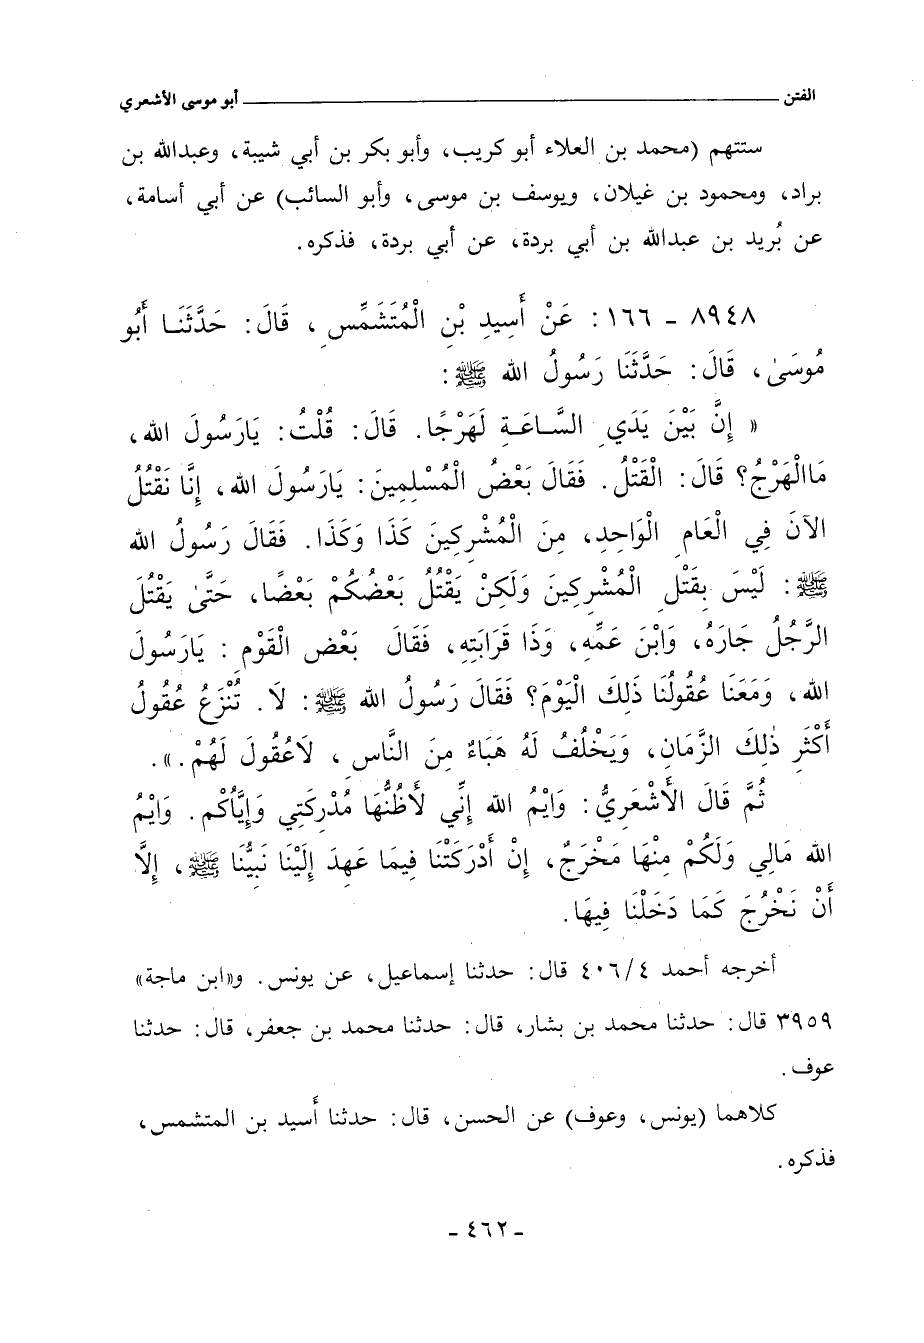 الفتن ــــــــــــــــ أبو موسى الأشعري
ستتهم (محمد بن العلاء أبو كريب، وأبو بكر بن أبي شيبة، وعبدالله بن
براد، ومحمود بن غيلان، ويوسف بن موسى، وأبو السائب) عن أبي أسامة،
عن بُريد بن عبدالله بن أبي بردة، عن أبي بردة، فذكره.
٨٩٤٨ - ١٦٦: عَنْ أَسِيدِ بْنِ الْمُتَشَمِّسِ، قَالَ: حَدَّثَنَا أَبُو
مُوسَىٰ، قَالَ: حَدَّثَنَا رَسُولُ الله ﷺ:
« إِنَّ بَيْنَ يَدَيِ السَّاعَةِ لَهَرْجًا. قَالَ: قُلْتُ: يَارَسُولَ الله،
مَاالْهَرْجُ؟ قَالَ: الْقَتْلُ. فَقَالَ بَعْضُ الْمُسْلِمِينَ: يَارَسُولَ الله، إِنَّا نَقْتُلُ
الآنَ فِي الْعَامِ الْوَاحِدِ، مِنَ الْمُشْرِكِينَ كَذَا وَكَذَا. فَقَالَ رَسُولُ الله
ﷺ: لَيْسَ بِقَتْلِ الْمُشْرِكِينَ وَلَكِنْ يَقْتُلُ بَعْضُكُمْ بَعْضًا، حَتَّىٰ يَقْتُلَ
الرَّجُلُ جَارَهُ، وَابْنَ عَمِّهِ، وَذَا قَرَابَتِهِ، فَقَالَ بَعْضُ الْقَوْمِ: يَارَسُولَ
الله، وَمَعَنَا عُقُولُنَا ذَلِكَ الْيَوْمَ؟ فَقَالَ رَسُولُ الله ﷺ: لَا. تُنْزَعُ عُقُولُ
أَكْثَرِ ذٰلِكَ الزَّمَانِ، وَيَخْلُفُ لَهُ هَبَاءٌ مِنَ النَّاسِ، لَاعُقُولَ لَهُمْ.».
ثُمَّ قَالَ الأَشْعَرِيُّ: وَايْمُ الله إِنِّي لأَظُنُّهَا مُدْرِكَتِي وَإِيَّاكُم. وَايْمُ
الله مَالِي وَلَكُمْ مِنْهَا مَخْرَجٌ، إِنْ أَدْرَكَتْنَا فِيمَا عَهِدَ إِلَيْنَا نَبِيُّنَا ﷺ، إِلَّا
أَنْ نَخْرُجَ كَمَا دَخَلْنَا فِيهَا.
أخرجه أحمد ٤/٤٠٦ قال: حدثنا إسماعيل، عن يونس. و«ابن ماجة»
٣٩٥٩ قال: حدثنا محمد بن بشار، قال: حدثنا محمد بن جعفر، قال: حدثنا
عوف.
كلاهما (يونس، وعوف) عن الحسن، قال: حدثنا أَسيد بن المتشمس،
فذكره.
- ٤٦٢ -